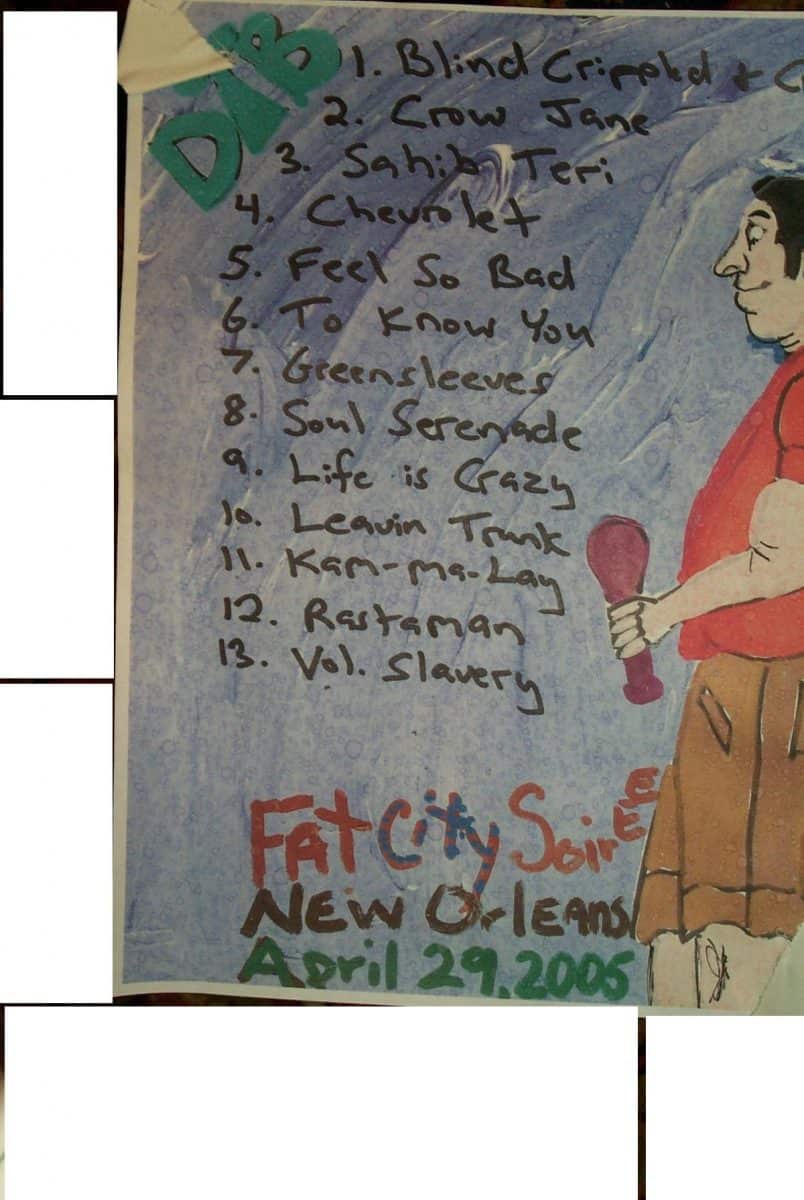 DTB
1. Blind Crippled +
2. Crow Jane
3. Sahib Teri
4. Chevrolet
5. Feel So Bad
6. To Know You
7. Greensleeves
8. Soul Serenade
9. Life is Crazy
10. Leavin Trunk
11. Kam-ma-Lay
12. Rastaman
13. Vol. Slavery
Fat City SoirEE
NEW OrLEANS
April 29, 2005